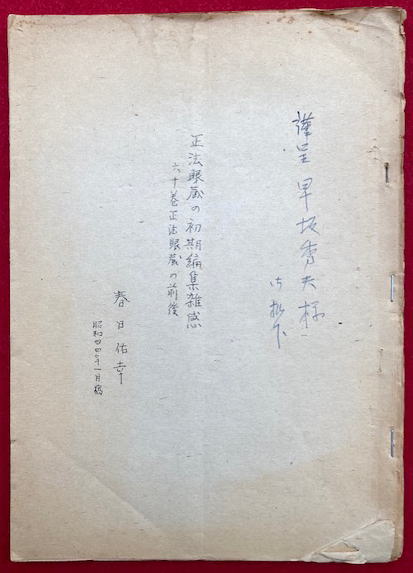 謹呈 早坂秀夫様
正法眼蔵の初期編集雑感
六十巻正法眼蔵の前後
春日佑幸
昭和四四年十一月稿